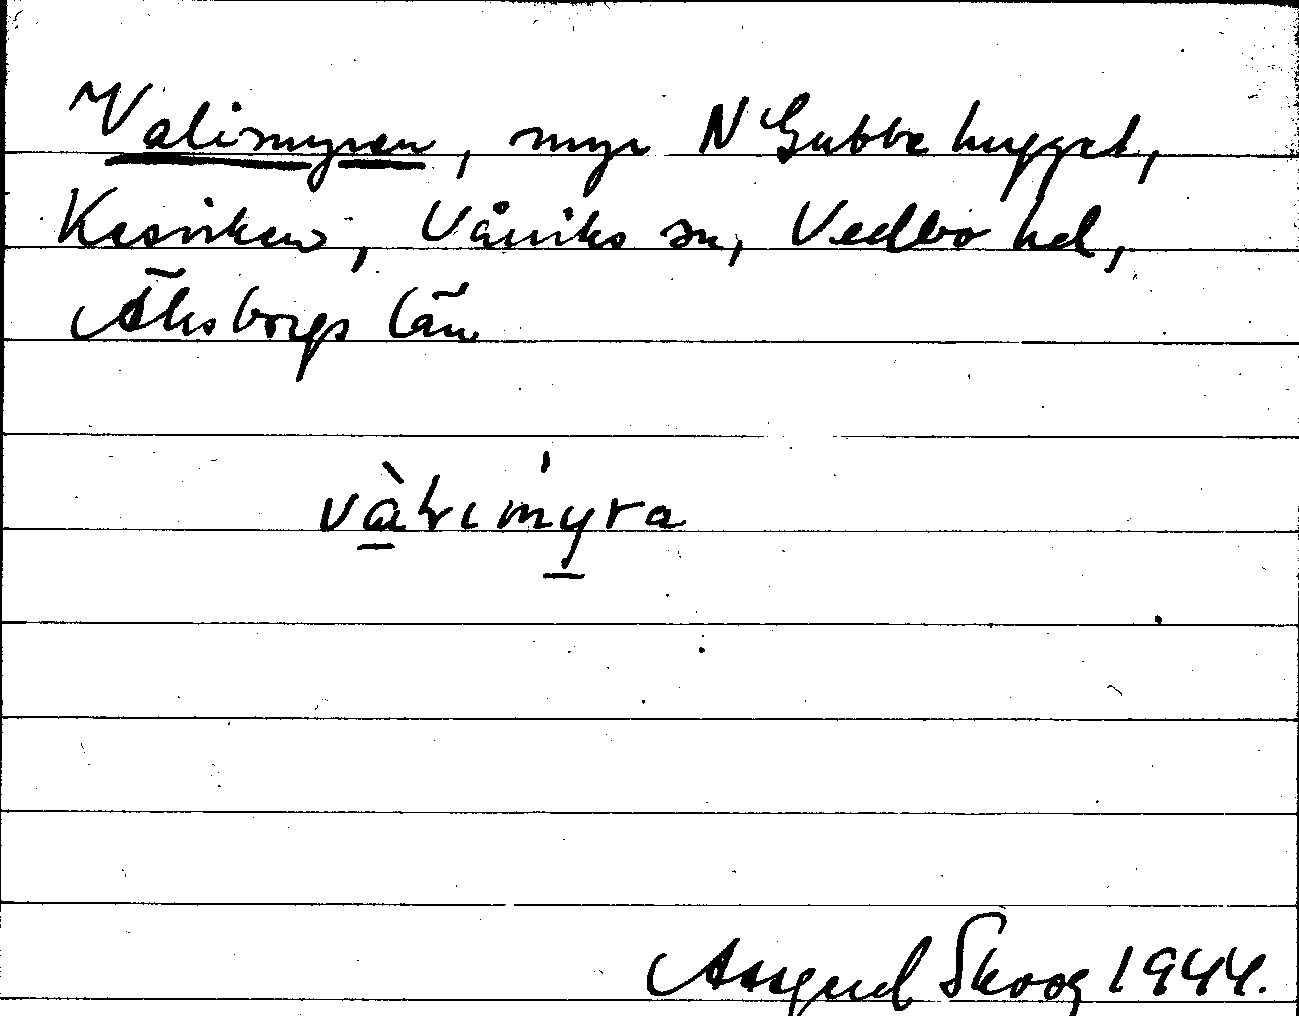 Valimyren, myr N Gubbehygget,
Kesviken, Vårviks sn, Vedbo hd,
Älvsborgs län
vàlimýra
Assar Skoog 1944.